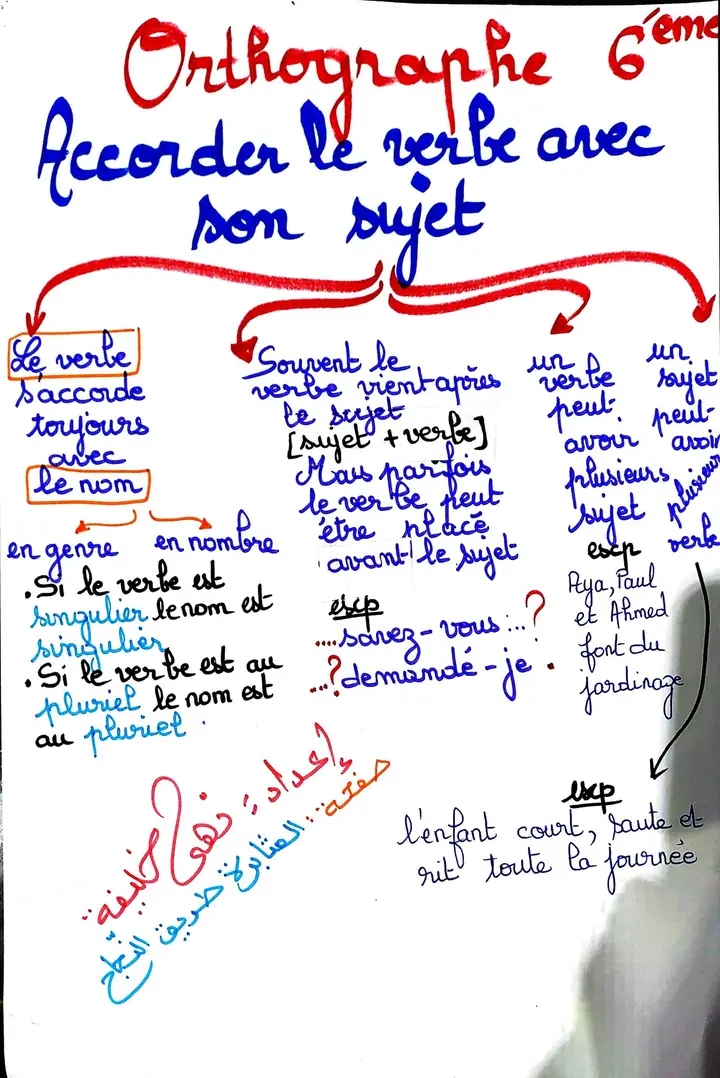 Orthographe 6ème
Accorder le verbe avec
son sujet
Le verbe
s'accorde
toujours
avec
le nom
en genre en nombre
. Si le verbe est
singulier le nom est
singulier
. Si le verbe est au
pluriel le nom est
au pluriel
Souvent le
verbe vient après
le sujet
[sujet + verbe]
Mais parfois
le verbe peut
être placé
avant le sujet
exp
....savez-vous...?
...? demandé-je .
un
verbe
peut
avoir
plusieurs
sujet
exp
Aya, Paul
et Ahmed
font du
jardinage
un
sujet
peut
avoir
plusieurs
verbe
exp
l'enfant court, saute et
rit toute la journée
إعداد: نهى خليفة
صفحة: المثابرة طريق النجاح